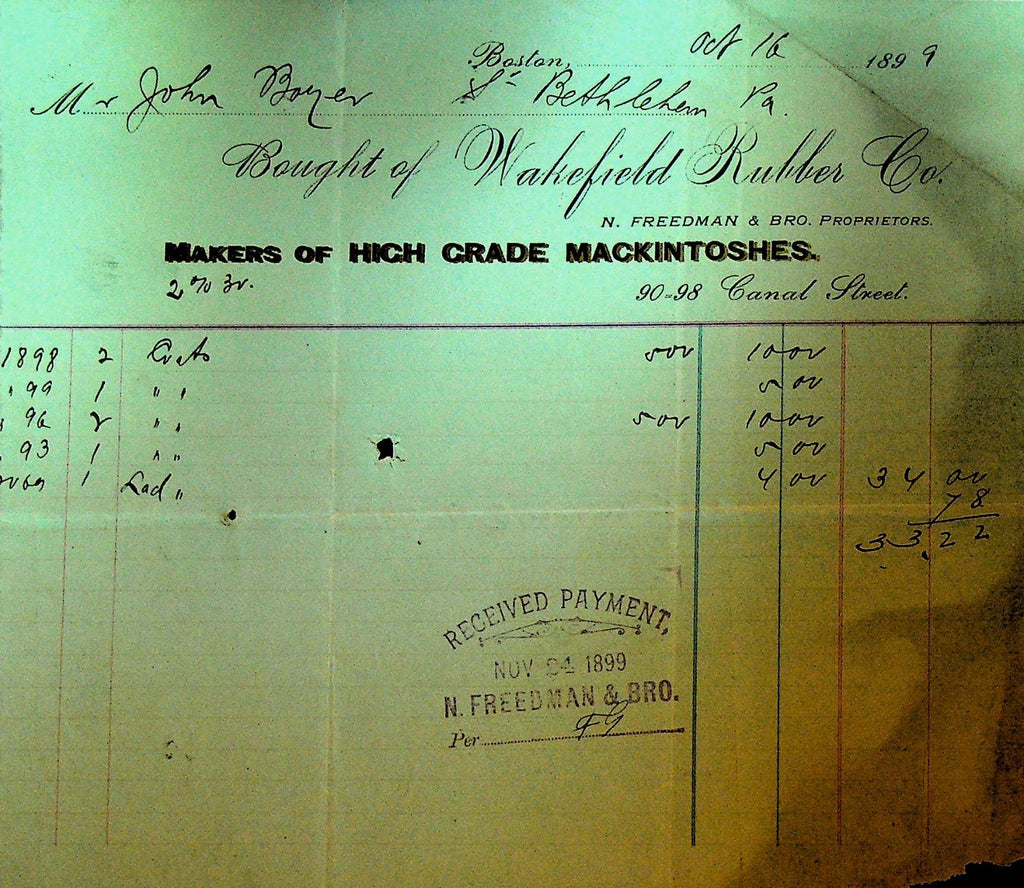 Boston, Oct 16 1899
Mr John Boyer St Bethlehem Pa.
Bought of Wakefield Rubber Co.
N. FREEDMAN & BRO. PROPRIETORS.
MAKERS OF HIGH GRADE MACKINTOSHES.
2 % 30.
90=98 Canal Street.
1898 2 Coats 500 10 00
" 99 1 " " 5 00
" 96 2 " " 500 10 00
" 93 1 " " 5 00
1 Lad " 4 00 34 00
78
33.22
RECEIVED PAYMENT,
NOV 24 1899
N. FREEDMAN & BRO.
Per FG